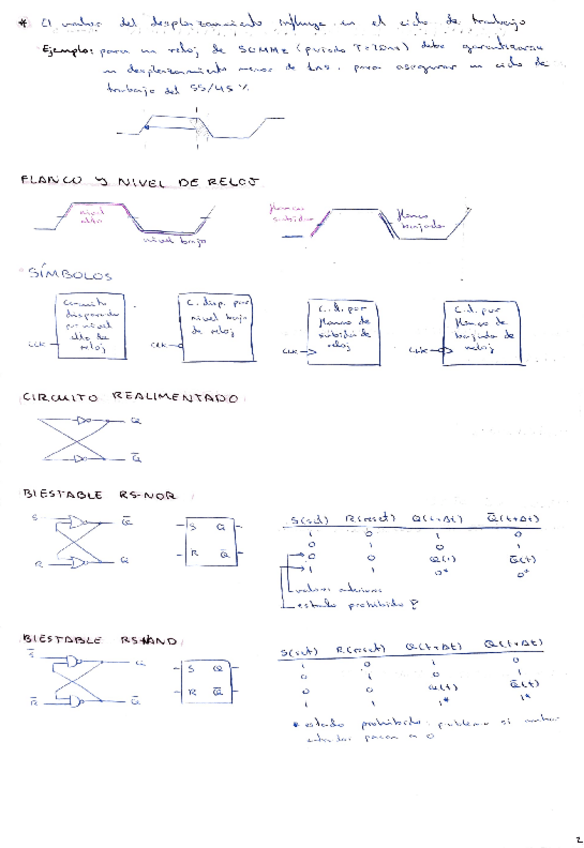 * El valor del desplazamiento influye en el ciclo de trabajo
Ejemplo: para un reloj de 50MHz (periodo T=20ns) debe garantizarse
un desplazamiento menor de 1ns. para asegurar un ciclo de
trabajo del 55/45 %
FLANCO Y NIVEL DE RELOJ
nivel alto
nivel bajo
flanco subida
flanco bajada
SÍMBOLOS
Circuito disparado por nivel alto de reloj
CLK
C. disp. por nivel bajo de reloj
CLK
C.d. por flanco de subida de reloj
CLK
C.d. por flanco de bajada de reloj
CLK
CIRCUITO REALIMENTADO
Q
Q̅
BIESTABLE RS-NOR
S Q̅
R Q
S Q
R Q̅
S(set) R(reset) Q(t+Δt) Q̅(t+Δt)
1 0 1 0
0 1 0 1
0 0 Q(t) Q̅(t)
1 1 0* 0*
estado prohibido
BIESTABLE RS-NAND
S̅ Q
R̅ Q̅
S Q
R Q̅
S(set) R(reset) Q(t+Δt) Q̅(t+Δt)
1 0 1 0
0 1 0 1
0 0 Q(t) Q̅(t)
1 1 1* 1*
* estado prohibido: problema si ambas
entradas pasan a 0
2